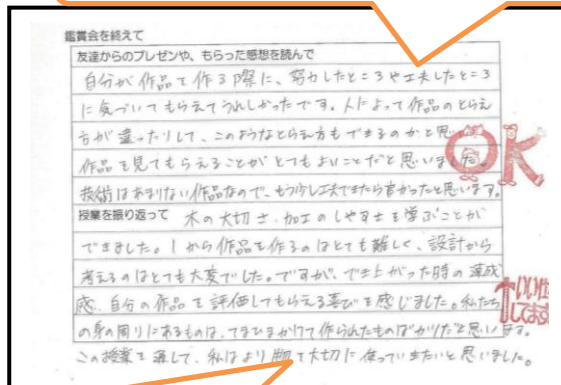 鑑賞会を終えて
友達からのプレゼンや、もらった感想を読んで
自分が作品を作る際に、努力したところや工夫したところ
に気づいてもらえてうれしかったです。人によって作品のとらえ
方が違ったりして、このようなとらえ方もできるのかと思
作品を見てもらえることがとてもよいことだと思いました。
OK
技術はあまりない作品なので、もう少し工夫できたら良かったと思います。
授業を振り返って 木の大切さ、加工のしやすさを学ぶことが
できました。1から作品を作るのはとても難しく、設計から
考えるのはとても大変でした。ですが、でき上がった時の達成
感、自分の作品を評価してもらえる喜びを感じました。私たち
の身の周りにあるものは、てまひまかけて作られたものばかりだと思います。
この授業を通して、私はより物を大切に使っていきたいと思いました。